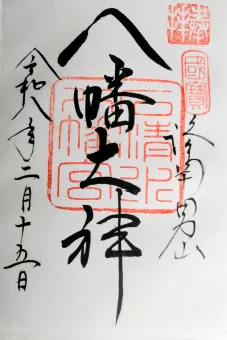 奉拝
國寶
男山
八幡大神
石清水
八幡宮
令和八年二月十五日